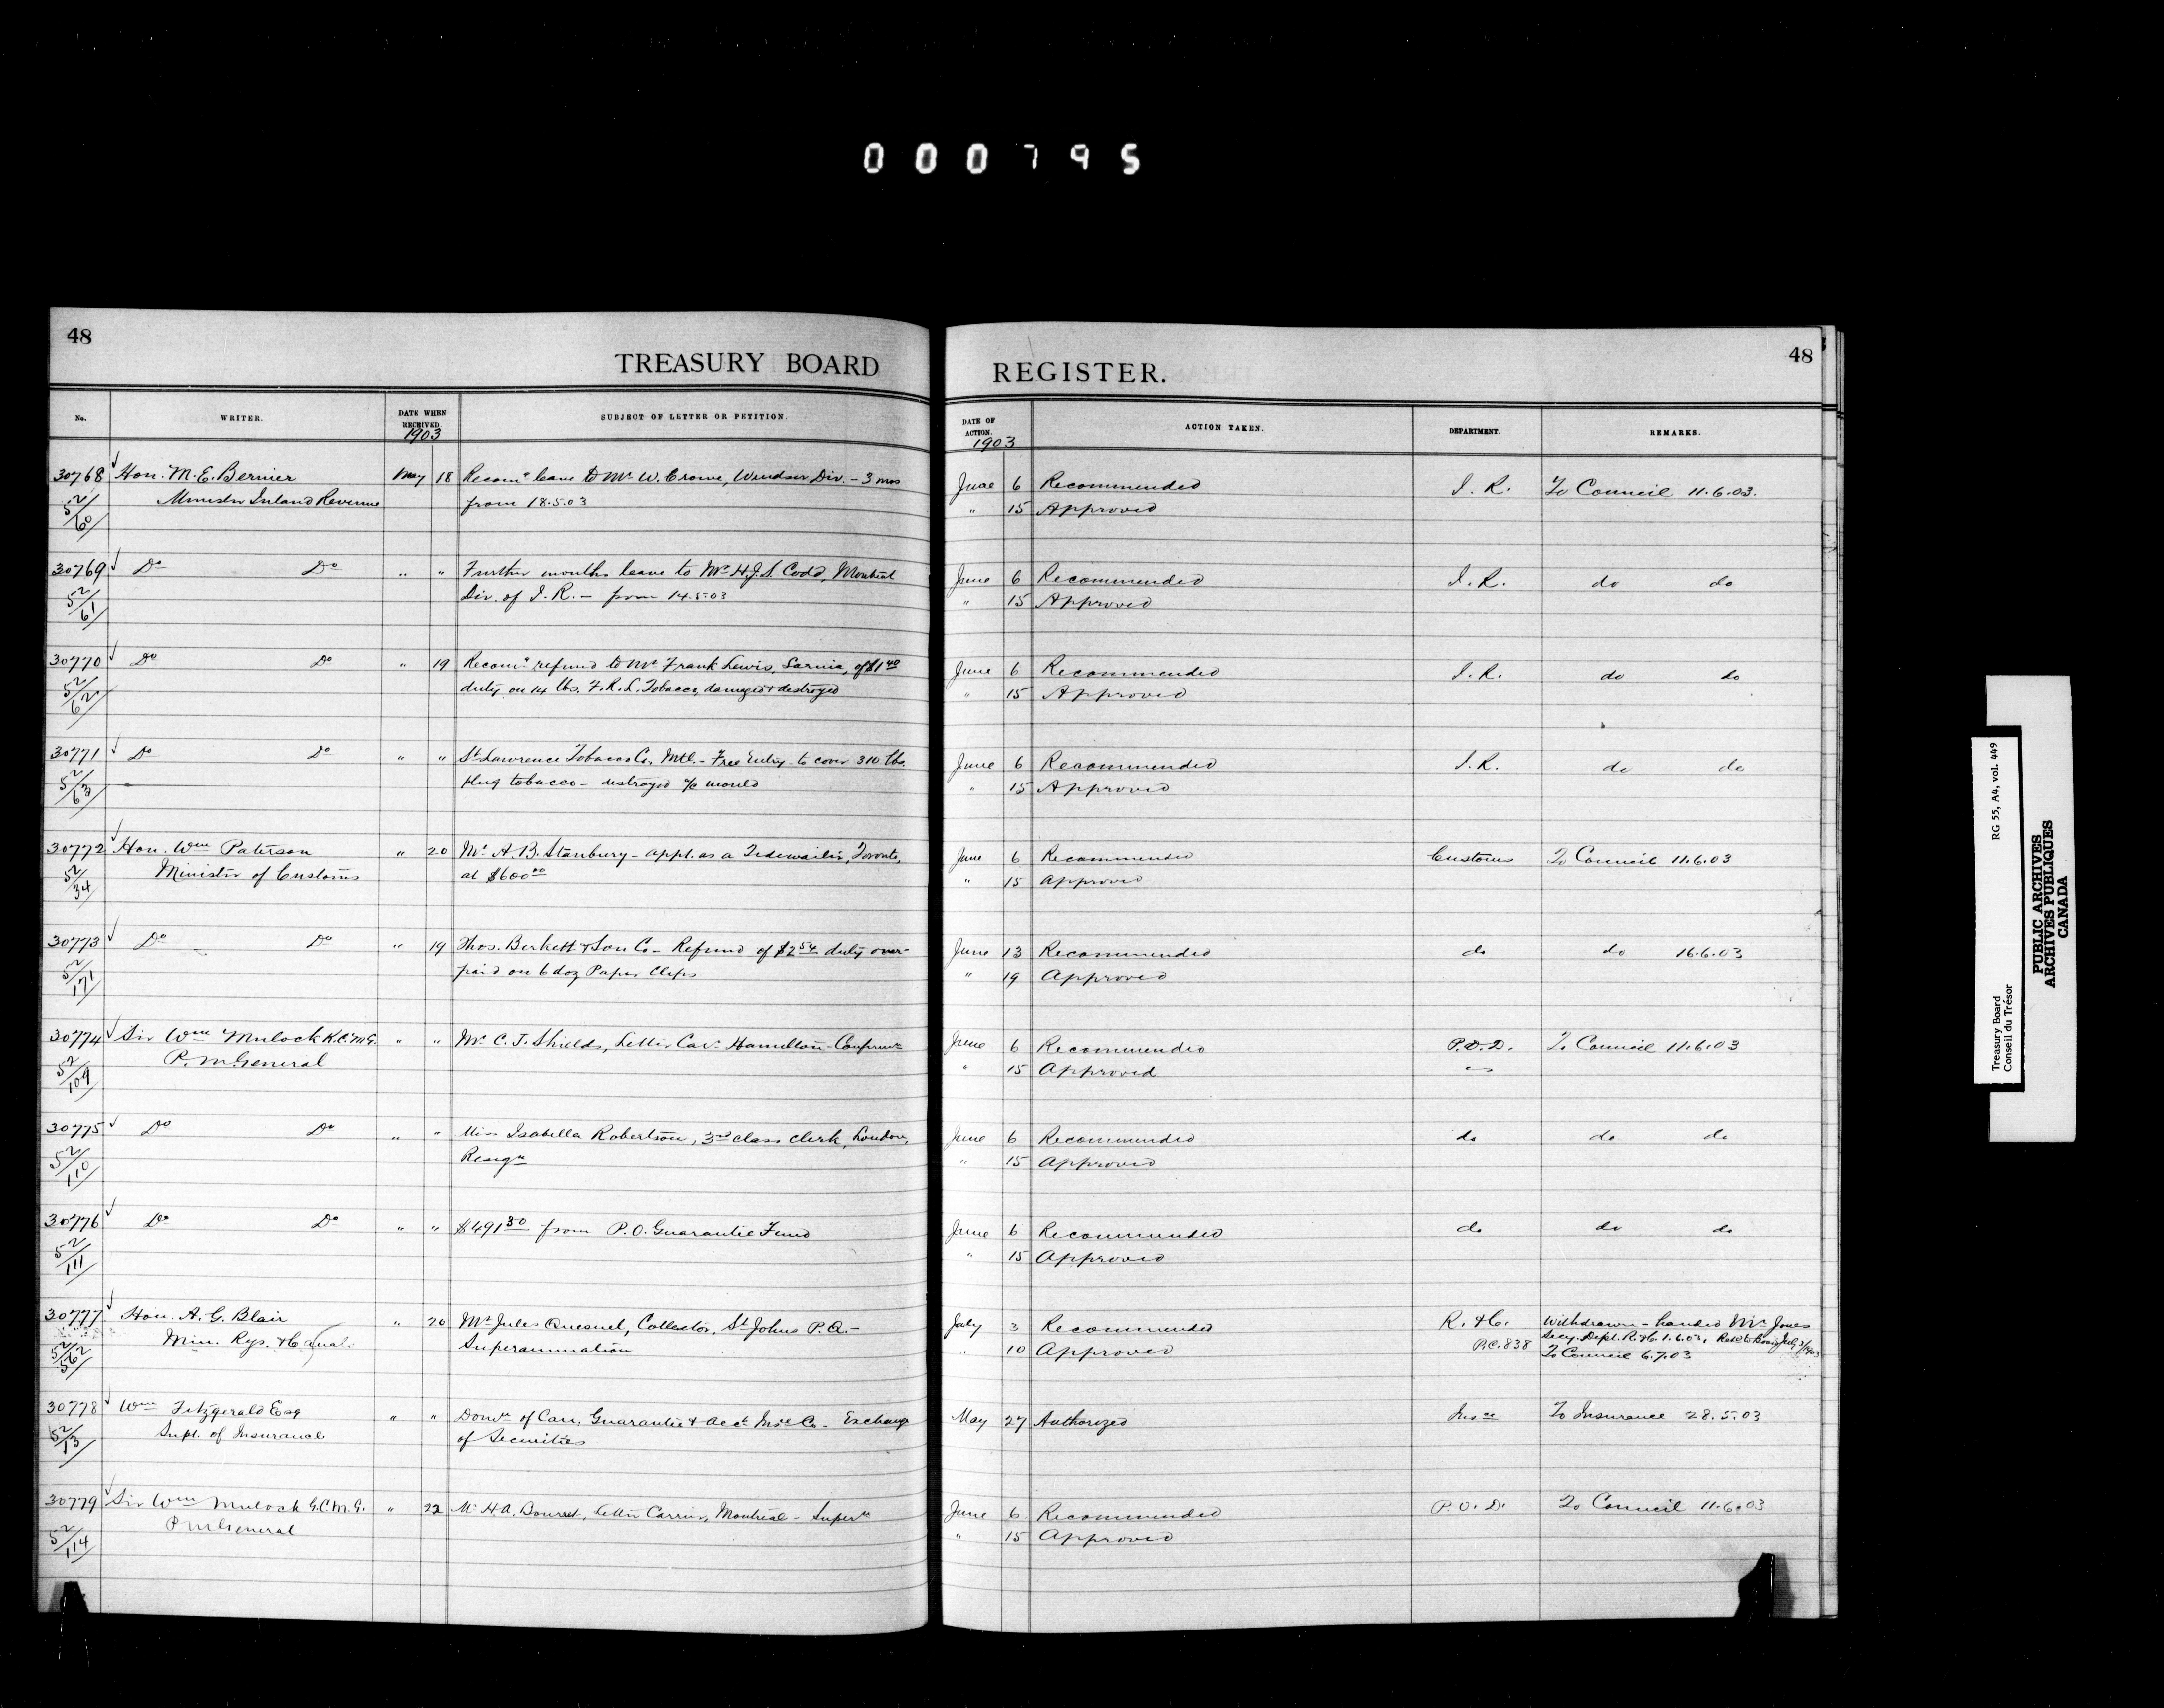 000795
48
TREASURY BOARD
No.
WRITER.
DATE WHEN RECEIVED.
1903
SUBJECT OF LETTER OR PETITION.
30768 Hon. M. E. Bernier May 18 Recomg leave to Mr W. Crowe, Windsor Div. - 3 mos
52/60 Minister Inland Revenue from 18.5.03
30769 Do Do " " Further months leave to Mr H.J.S. Codd, Montreal
52/61 Div. of I. R. - from 14.5.03
30770 Do Do " 19 Recomg refund to Mr Frank Lewis, Sarnia, of $1 40
52/62 duty on 14 lbs. F. R. L. Tobacco, damaged & destroyed
30771 Do Do " " St Lawrence Tobacco Co, Mtl. - Free Entry - to cover 310 lbs.
52/63 plug tobacco - destroyed a/c mould
30772 Hon. Wm Paterson " 20 Mr A. B. Stanbury - appt. as a Tidewaiter, Toronto,
52/34 Minister of Customs at $600 00
30773 Do Do " 19 Thos. Berkett & Son Co - Refund of $2 54 duty over-
52/171 paid on 6 doz Paper Clips
30774 Sir Wm Mulock K.C.M.G. " " Mr C. J. Shields, Letter Carr Hamilton -
52/109 P. M. General
30775 Do Do " " Miss Isabella Robertson, 3rd class clerk, London,
52/110 Resign
30776 Do Do " " $491 30 from P. O. Guarantee Fund
52/111
30777 Hon. A. G. Blair " 20 Mr Jules Quesnel, Collector, St Johns P. Q. -
52/562 Min. Rys. & Canals Superannuation
30778 Wm Fitzgerald Esq " " Domn of Can. Guarantee & Acct Insce Co - Exchange
52/13 Supt. of Insurance of Securities
30779 Sir Wm Mulock G.C.M.G. " 22 Mr H A. letter Carrier, Montreal - Supern
52/114 P M General
48
REGISTER.
DATE OF ACTION.
1903
ACTION TAKEN.
DEPARTMENT.
REMARKS.
June 6 Recommended I. R. To Council 11.6.03.
" 15 Approved
June 6 Recommended I. R. do do
" 15 Approved
June 6 Recommended I. R. do do
" 15 Approved
June 6 Recommended I. R. do do
" 15 Approved
June 6 Recommended Customs To Council 11.6.03
" 15 Approved
June 13 Recommended do do 16.6.03
" 19 Approved
June 6 Recommended P. O. D. To Council 11.6.03
" 15 Approved
June 6 Recommended do do do
" 15 Approved
June 6 Recommended do do do
" 15 Approved
July 3 Recommended R. & C. Withdrawn - handed Mr Jones
Secy. Dept. R. & C. 1.6.03,
" 10 Approved P.C. 838 To Council 6.7.03
May 27 Authorized Insce To Insurance 28.5.03
June 6 Recommended P. O. D. To Council 11.6.03
" 15 Approved
Treasury Board RG 55, A4, vol. 449
Conseil du Trésor
PUBLIC ARCHIVES
ARCHIVES PUBLIQUES
CANADA